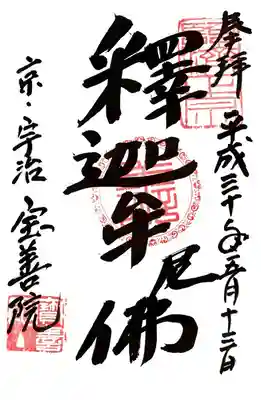 奉拝 平成三十年五月十三日
釋迦牟尼佛
京・宇治 宝善院